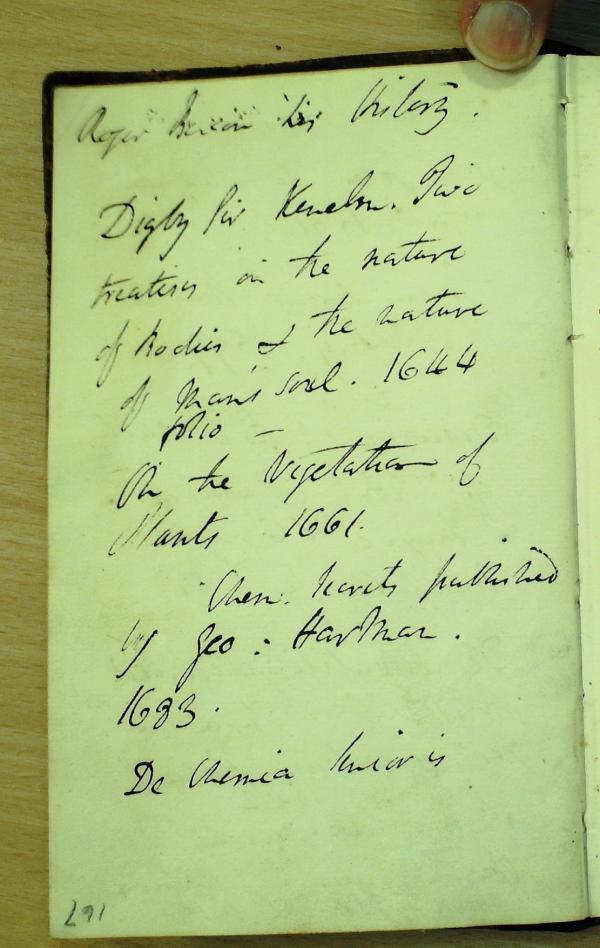 Roger Bacon his History.
Digby Sir Kenelm. Two
treatises on the nature
of bodies & the nature
of Man's soul. 1644
folio —
On the Vegetation of
Plants 1661.
Chem. secrets published
by Geo: Hartman.
1683.
De Chemia Senioris
291